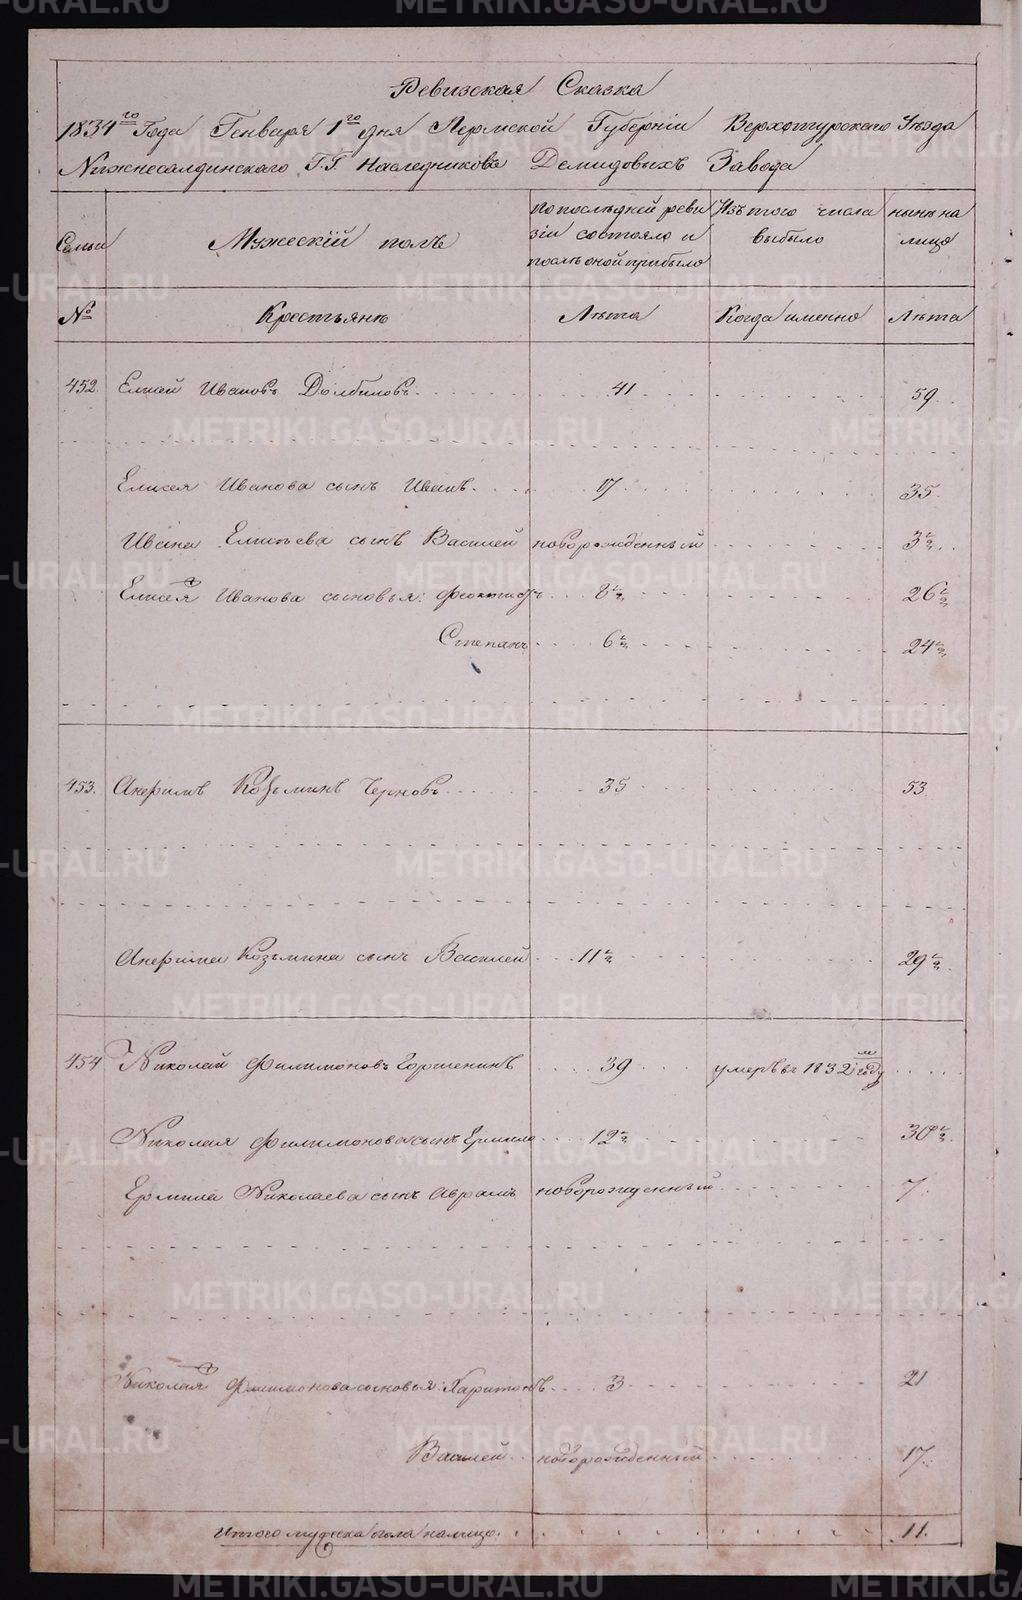 Ревизская Сказка
1834го Года Генваря 1го дня Пермской Губерніи Верхотурского Уезда
Нижнесалдинскаго Г.Г. Наследниковъ Демидовыхъ Завода
Семьи Мужескій полъ По последней реви Изъ того числа ныне на
зіи состояло и выбыло лицо
после оной прибыло
№ Крестьяне Лѣта Когда именно Лѣта
452. Елисей Ивановъ Долбиловъ 41 59
Елисея Иванова сынъ Иванъ 17 35
Ивана Елисѣева сынъ Василей новорожденный 3½
Елисея Иванова сыновья: Феоктистъ 8½ 26½
Степанъ 6½ 24½
453. Анфимъ Козьминъ Черновъ 35 53
Анфима Козьмина сынъ Василей 11½ 29½
454 Николай Филимоновъ Горшенинъ 39 умеръ въ 1832м году
Николая Филимонова сынъ Ермило 12½ 30½
Ермила Николаева сынъ Аврамъ новорожденный 7
Николая Филимонова сыновья: Харитонъ 3 21
Василей новорожденный 17
Итого мужеска пола налицо 11.
METRIKI.GASO-URAL.RU